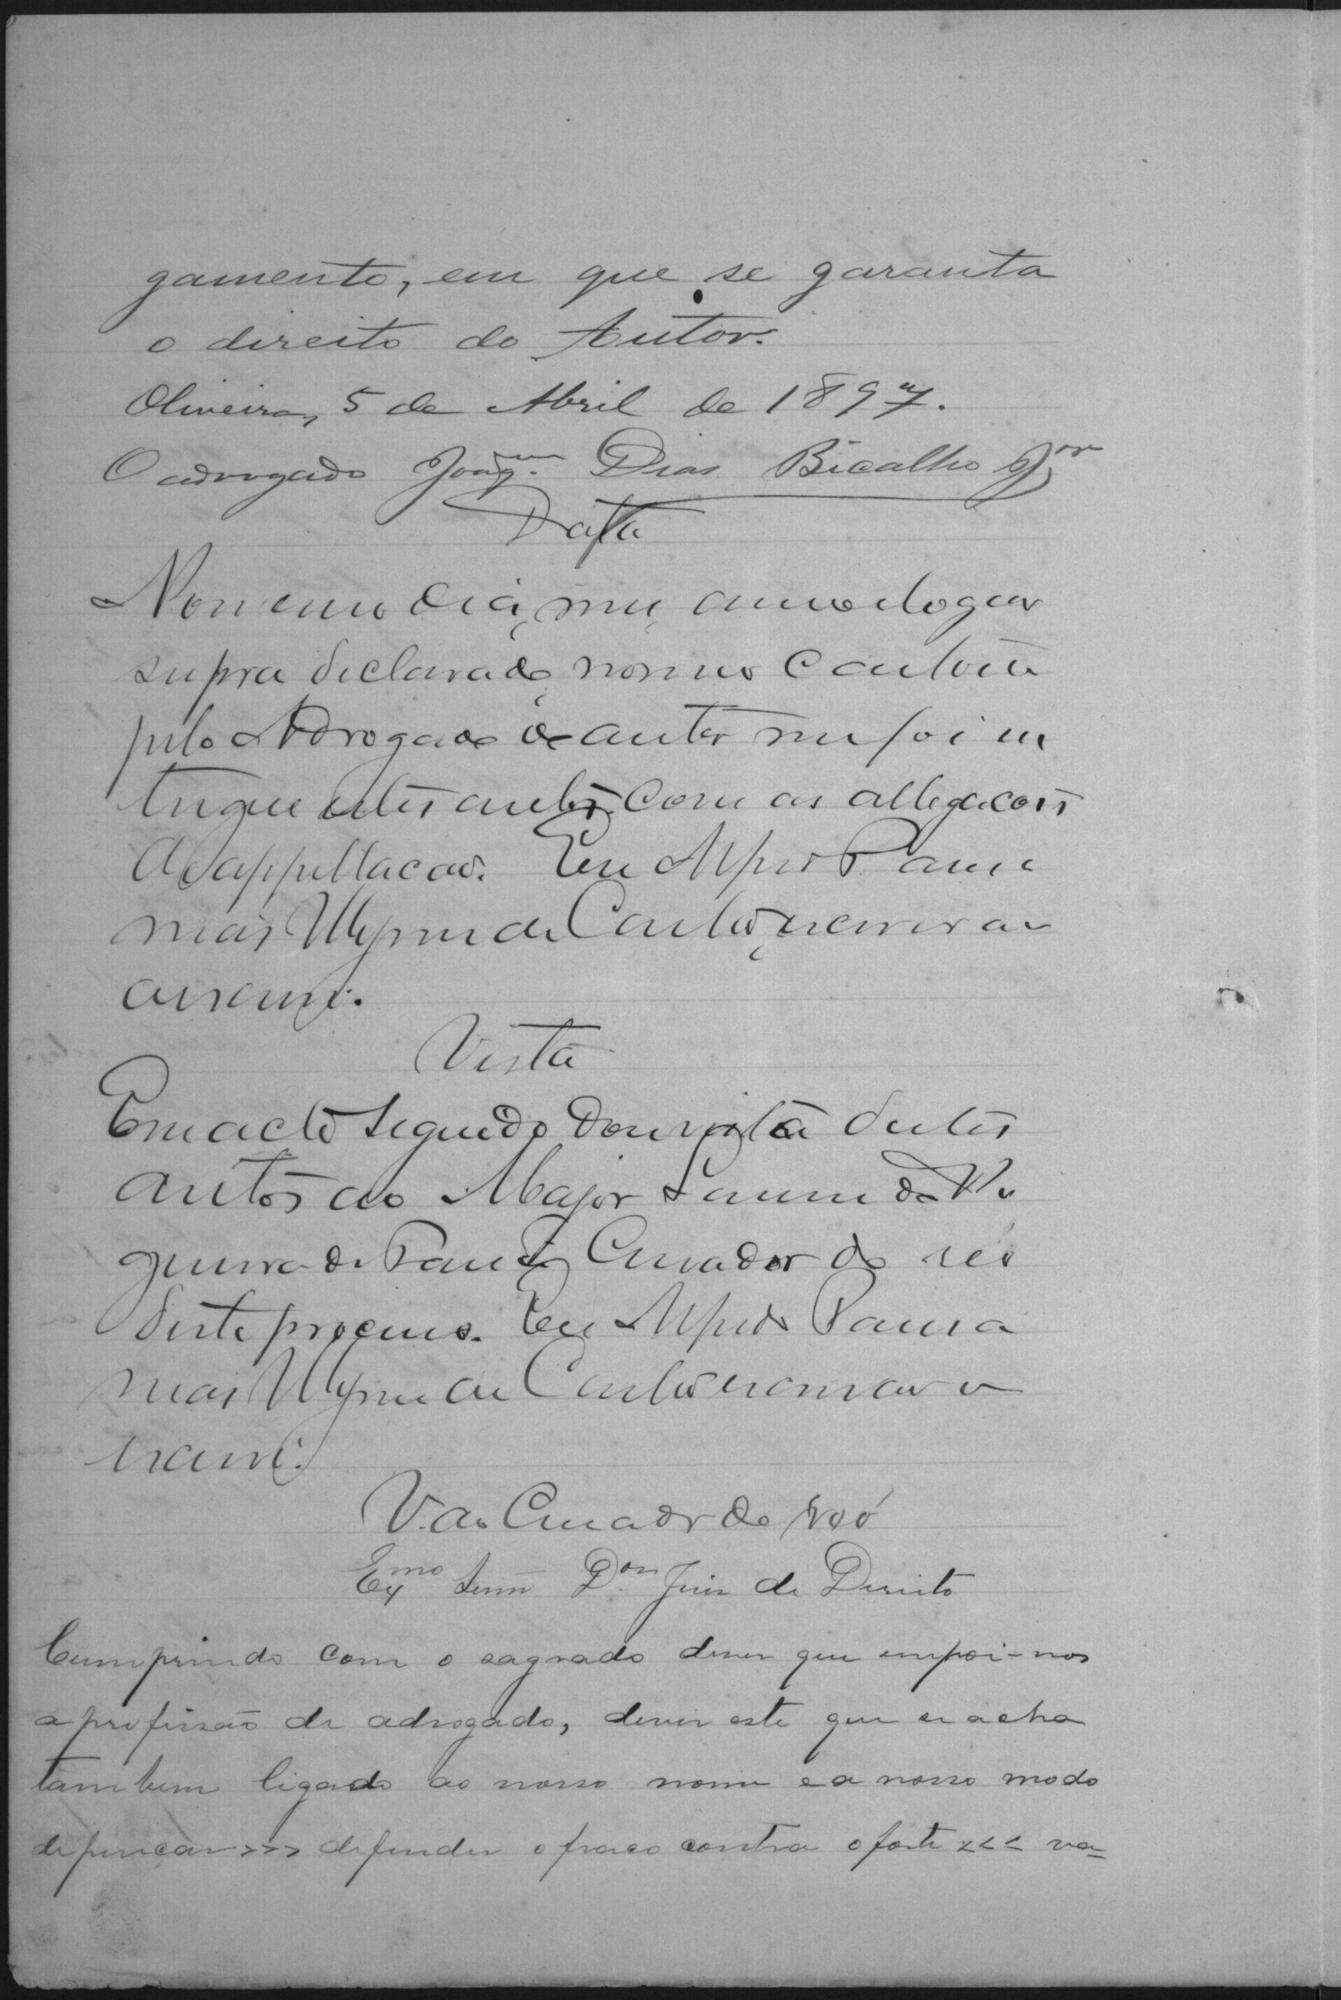 gamento, em que se garanta
o direito do Autor.
Oliveira, 5 de Abril de 1897.
O advogado Joaqm. Dias Bicalho Jor
Data
No mesmo dia, mez, anno e logar
supra declarado, no meu Cartorio
pelo Advogado do autor me foi en
tregue estes autos com as allegacois
de appellacao. Eu Alfredo
de Castro, escrivao
assignei.
Vista
Em acto seguido dou vista destes
autos ao Major
de Curador do reo
deste processo. Eu Alfredo
de Castro escrivao
V. ao Curador do reó
Exmo Senr Dor Juiz de Direito
Cumprindo com o sagrado dever que impoi-nos
a profissão de advogado, dever este que se acha
tambem ligado ao nosso nome e a nosso modo
de pençar >>> defender o fraco contra o forte <<< va=